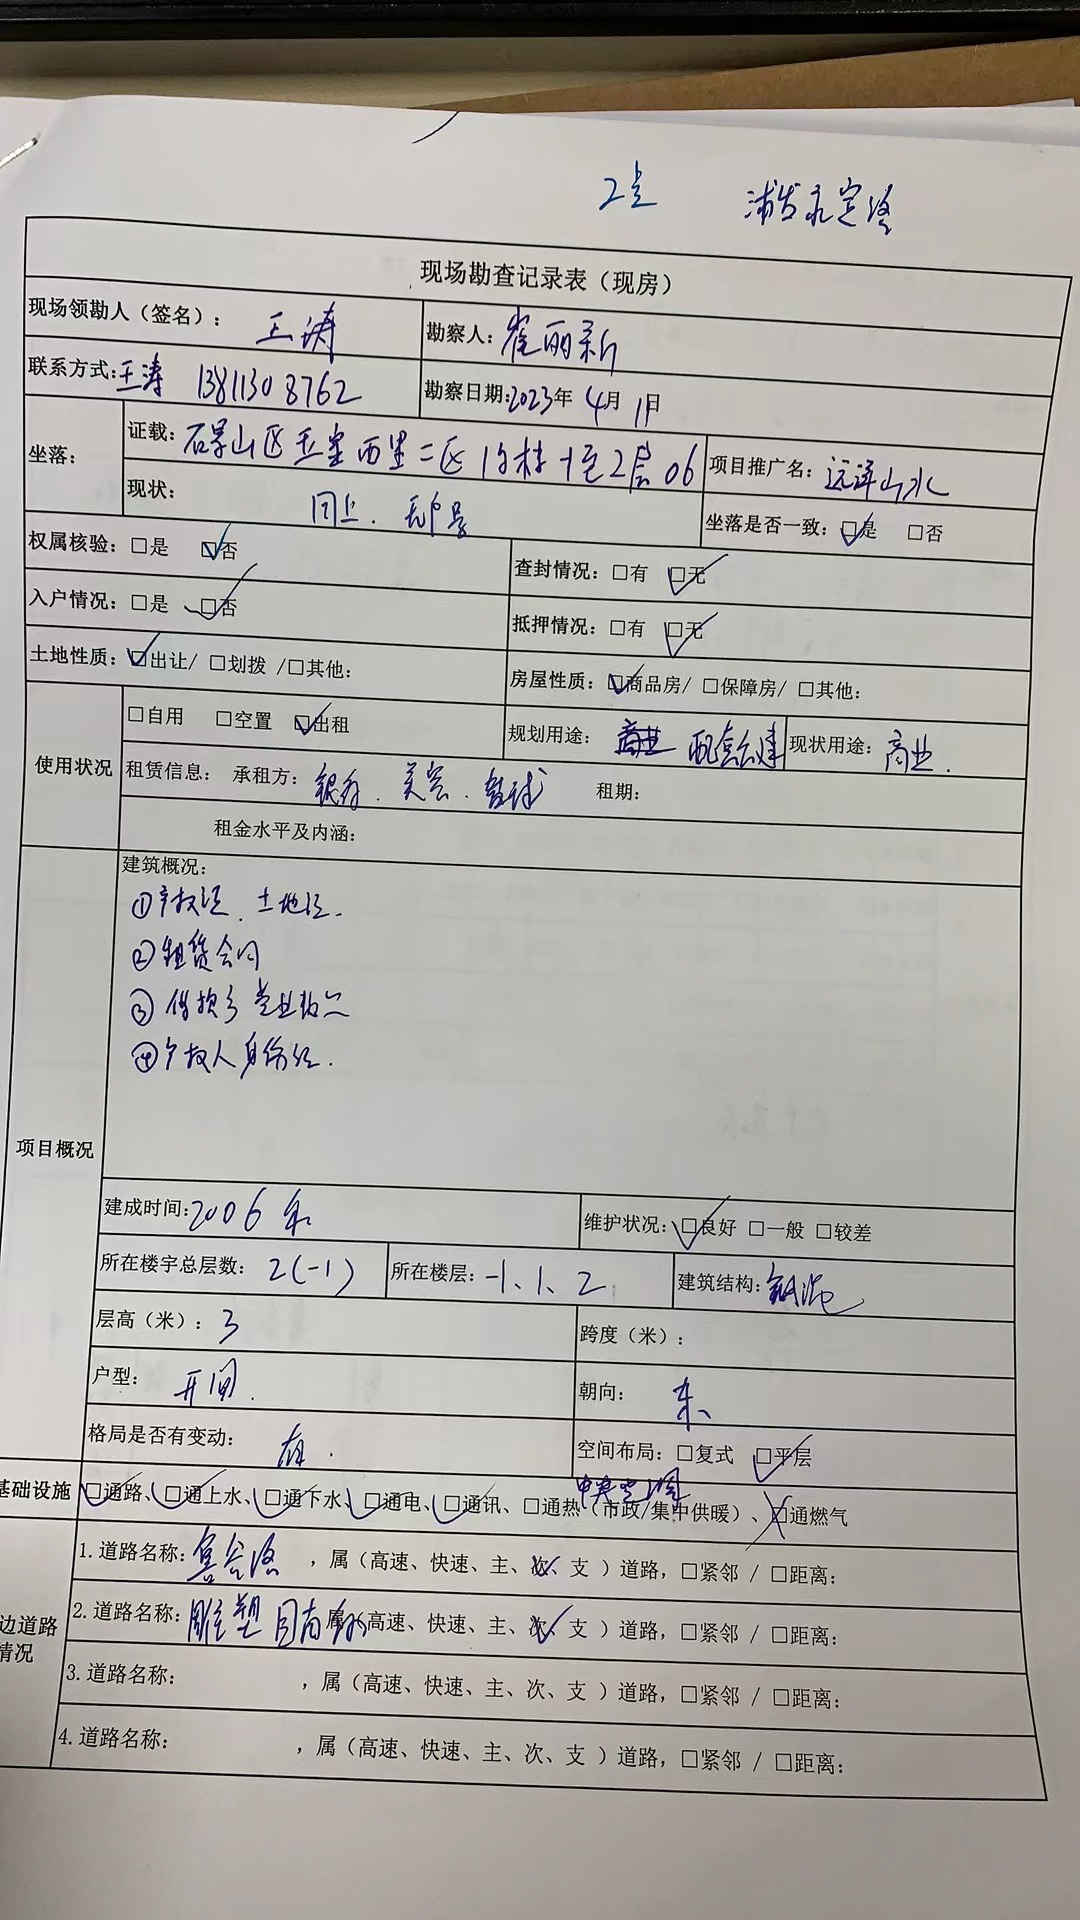 2套 浦发永定路
现场勘查记录表（现房）
现场领勘人（签名）： 王涛 勘察人：崔丽新
联系方式：王涛 13811308762 勘察日期：2023年 4月 1日
坐落： 证载：石景山区玉 西里二区 栋-1至2层06 项目推广名：远洋山水
现状： 同上．无户号 坐落是否一致：☑是 □否
权属核验：□是 ☑否 查封情况：□有 ☑无
入户情况：□是 ☑否 抵押情况：□有 ☑无
土地性质：☑出让/ □划拨 /□其他： 房屋性质：☑商品房/ □保障房/ □其他：
使用状况 □自用 □空置 ☑出租 规划用途： 商业 配套公建 现状用途：商业．
租赁信息： 承租方：银行．美容． 租期：
租金水平及内涵：
项目概况 建筑概况：
①产权证．土地证．
②租赁合同
③ 营业执照
④产权人身份证．
建成时间：2006年 维护状况：☑良好 □一般 □较差
所在楼宇总层数：2(-1) 所在楼层：-1、1、2 建筑结构：钢混
层高（米）：3 跨度（米）：
户型： 开间． 朝向： 东
格局是否有变动： 有． 空间布局：□复式 ☑平层
中央空调
基础设施 ☑通路、☑通上水、☑通下水、☑通电、☑通讯、□通热（市政/集中供暖）、☒通燃气
边道路情况 1.道路名称： ，属（高速、快速、主、次、支 ）道路，□紧邻 / □距离：
2.道路名称：雕塑园南路 属（高速、快速、主、次、支 ）道路，□紧邻 / □距离：
3.道路名称： ，属（高速、快速、主、次、支 ）道路，□紧邻 / □距离：
4.道路名称： ，属（高速、快速、主、次、支 ）道路，□紧邻 / □距离：